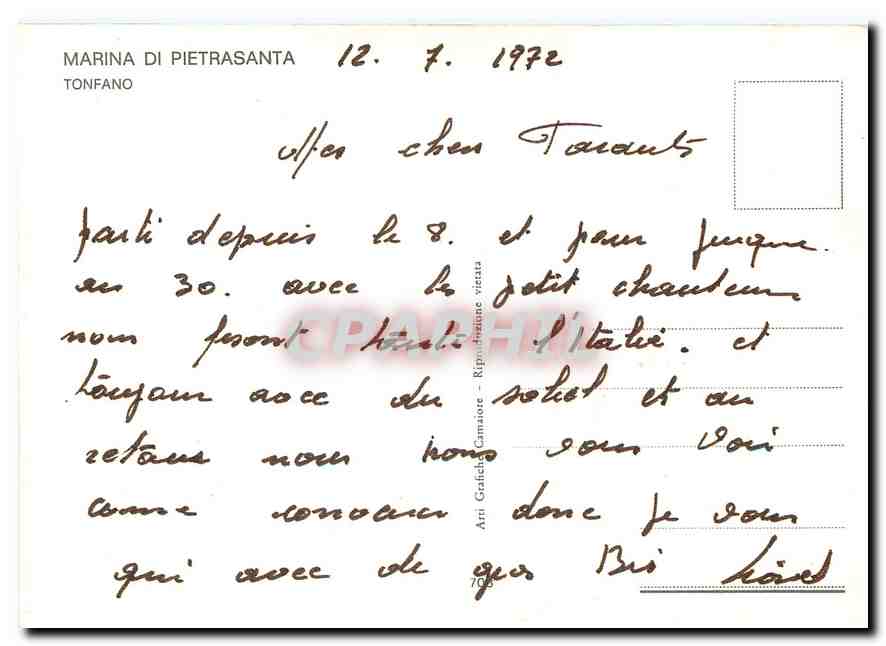 MARINA DI PIETRASANTA 12. 7. 1972
TONFANO
Mes chers Parents
parti depuis le 8. et pour jusque.
au 30. avec les petit chanteur
nous feront toute l'Italie. et
toujour avec du soleil et au
retour nous irons vous voir
come convenu donc je vous
qui avec de gros Bis
Arti Grafiche Camaiore - Riproduzione vietata
CPAPHIL